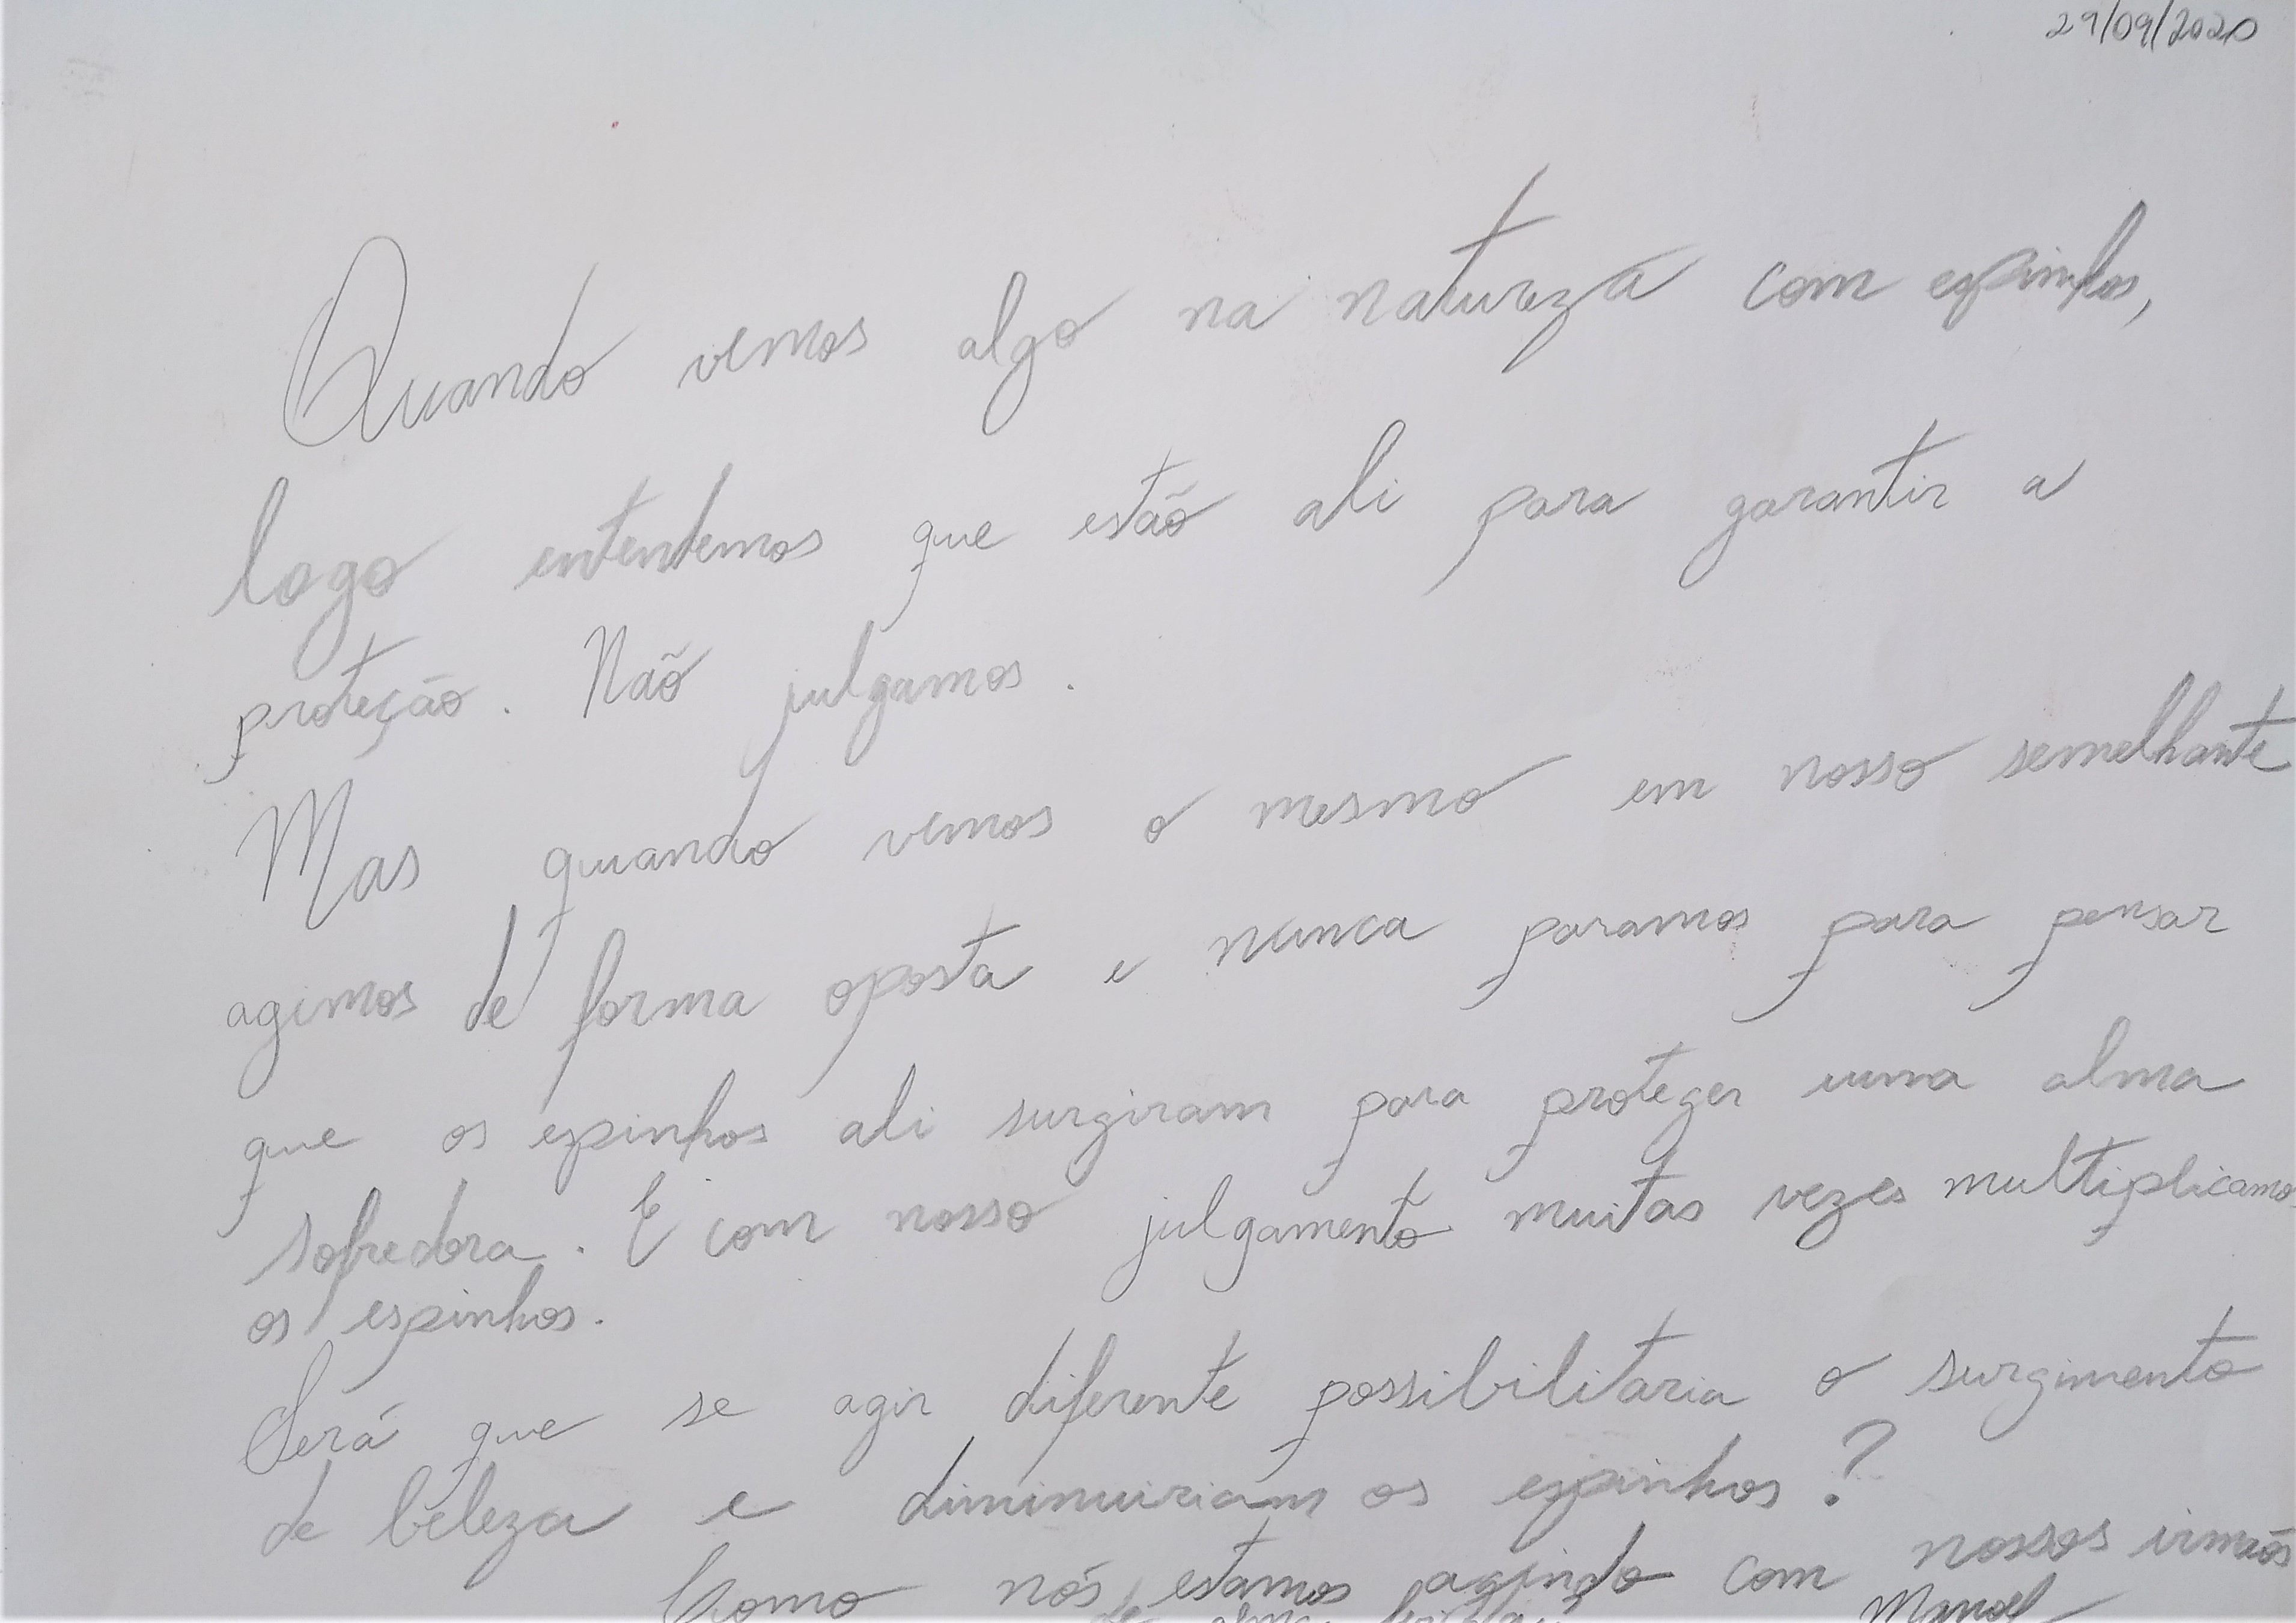 29/09/2020
Quando vemos algo na natureza com espinhos,
logo entendemos que estão ali para garantir a
proteção. Não julgamos.
Mas quando vemos o mesmo em nosso semelhante
agimos de forma oposta e nunca paramos para pensar
que os espinhos ali surgiram para proteger uma alma
sofredora. E com nosso julgamento muitas vezes multiplicamos
os espinhos.
Será que se agir diferente possibilitaria o surgimento
de beleza e diminuiriam os espinhos?
Como nós estamos agindo com nossos irmãos
de alma
Manoel